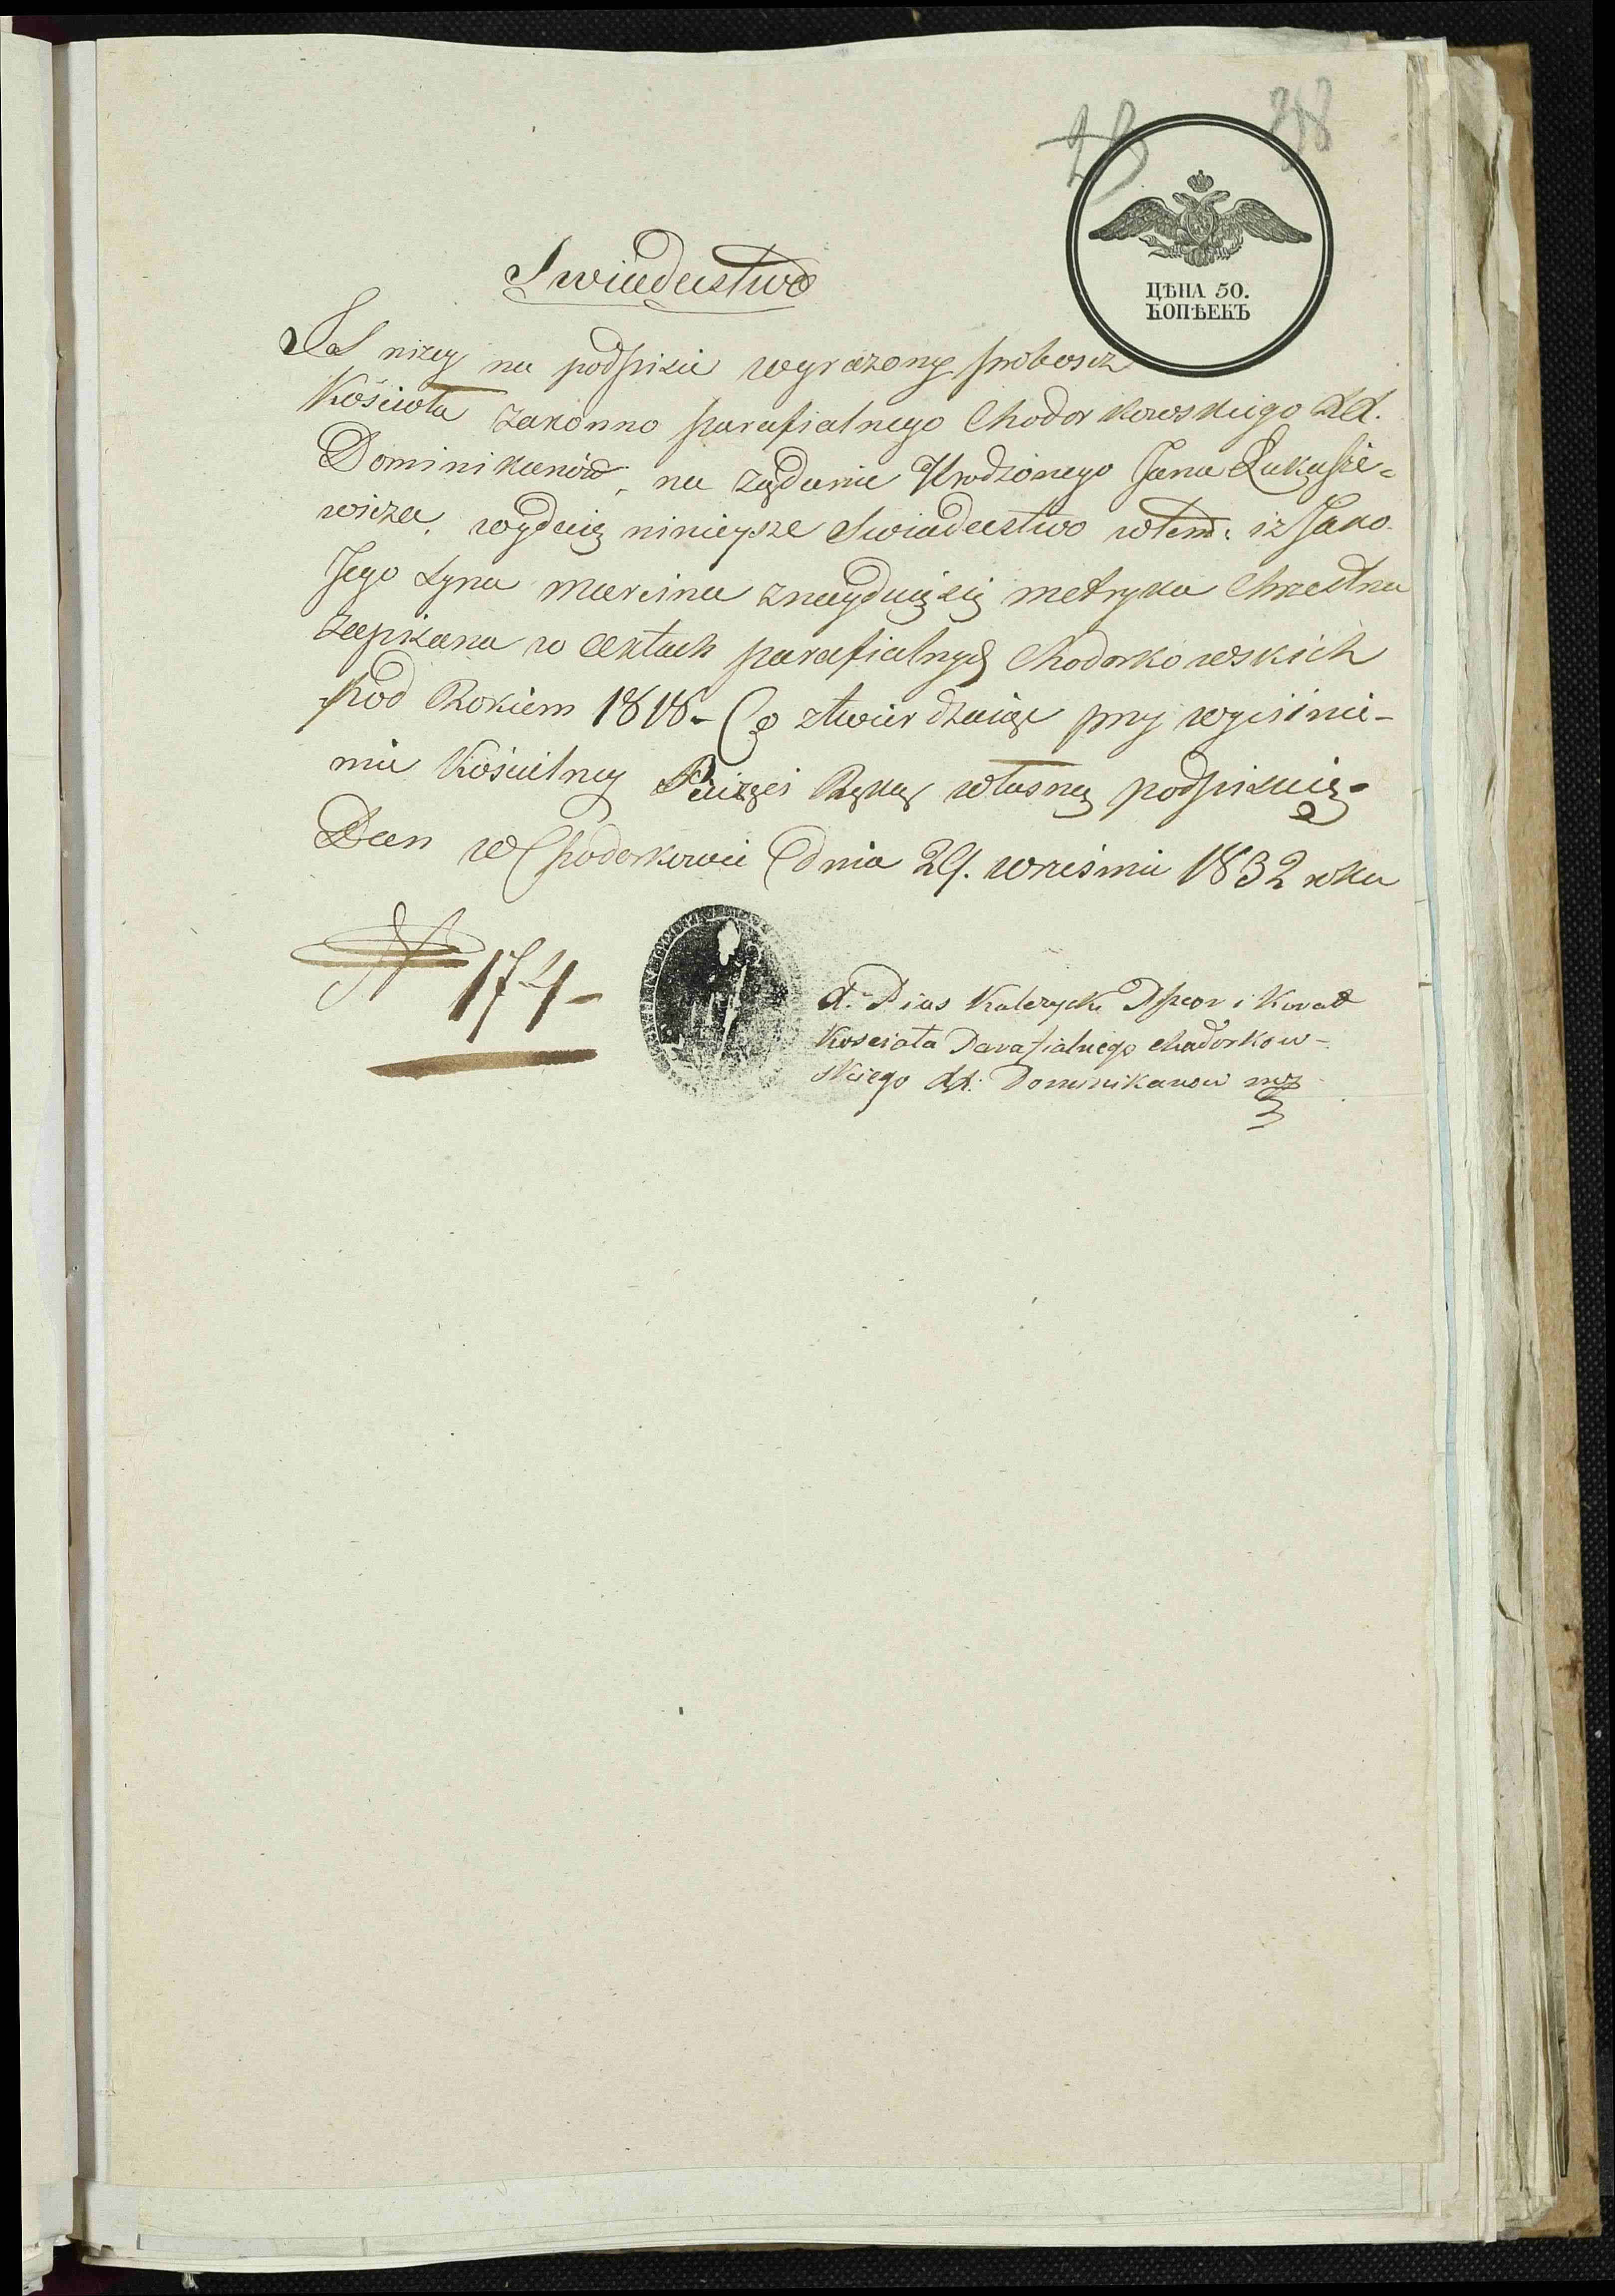 28 318
ЦѢНА 50.
КОПѢЕКЪ
Swiadectwo
Ja niżey na podpisie wyrażony proboszcz
Kościoła zakonno parafialnego Chodorkowskiego XX.
Dominikanów, na żądanie Urodzonego Jana Łukasze=
wicza, wydaię ninieysze Swiadectwo wtem: iż Jako
Jego Syna Marcina znayduię się metryka Chrzestna
zapisana w Aktach parafialnych Chodorkowskich
pod Rokiem 1818 - Co ztwierdzaiąc przy wyciśnie-
niu Kościelney Pieczęci Ręką własną podpisuię.
Dan w Chodorkowie dnia 29. września 1832 roku
N 174 -
X. Pius Kalczycki Przeor i Kurat
Koscioła Parafialnego Chodorkow-
skiego XX. Dominikanow mp